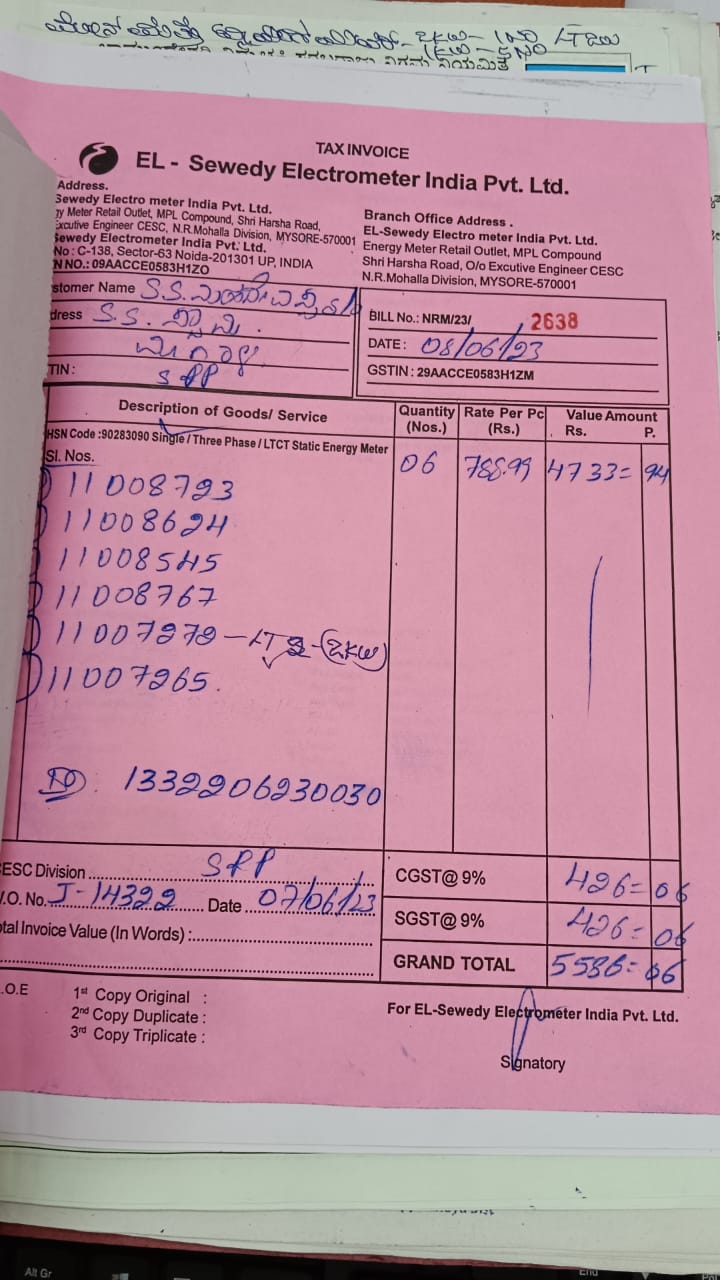 2KW - 1NO LT
1KW - 5NO
TAX INVOICE
EL - Sewedy Electrometer India Pvt. Ltd.
Address.
Sewedy Electro meter India Pvt. Ltd.
gy Meter Retail Outlet, MPL Compound, Shri Harsha Road,
Excutive Engineer CESC, N.R.Mohalla Division, MYSORE-570001
Sewedy Electrometer India Pvt. Ltd.
No : C-138, Sector-63 Noida-201301 UP, INDIA
N NO.: 09AACCE0583H1ZO
Branch Office Address .
EL-Sewedy Electro meter India Pvt. Ltd.
Energy Meter Retail Outlet, MPL Compound
Shri Harsha Road, O/o Excutive Engineer CESC
N.R.Mohalla Division, MYSORE-570001
stomer Name S.S.
dress S.S.
TIN: SPP
BILL No.: NRM/23/ 2638
DATE: 08/06/23
GSTIN : 29AACCE0583H1ZM
Description of Goods/ Service Quantity (Nos.) Rate Per Pc (Rs.) Value Amount Rs. P.
HSN Code :90283090 Single / Three Phase / LTCT Static Energy Meter
Sl. Nos. 06 788.99 4733= 94
11008793
11008624
11008545
11008767
11007979 - LT (2KW)
11007965
1332206230030
CESC Division SPP
.O. No. J-14322 Date 07/06/23
tal Invoice Value (In Words) :
CGST@ 9% 426= 06
SGST@ 9% 426= 06
GRAND TOTAL 5586= 06
.O.E
1st Copy Original :
2nd Copy Duplicate :
3rd Copy Triplicate :
For EL-Sewedy Electrometer India Pvt. Ltd.
Signatory
Alt Gr
End